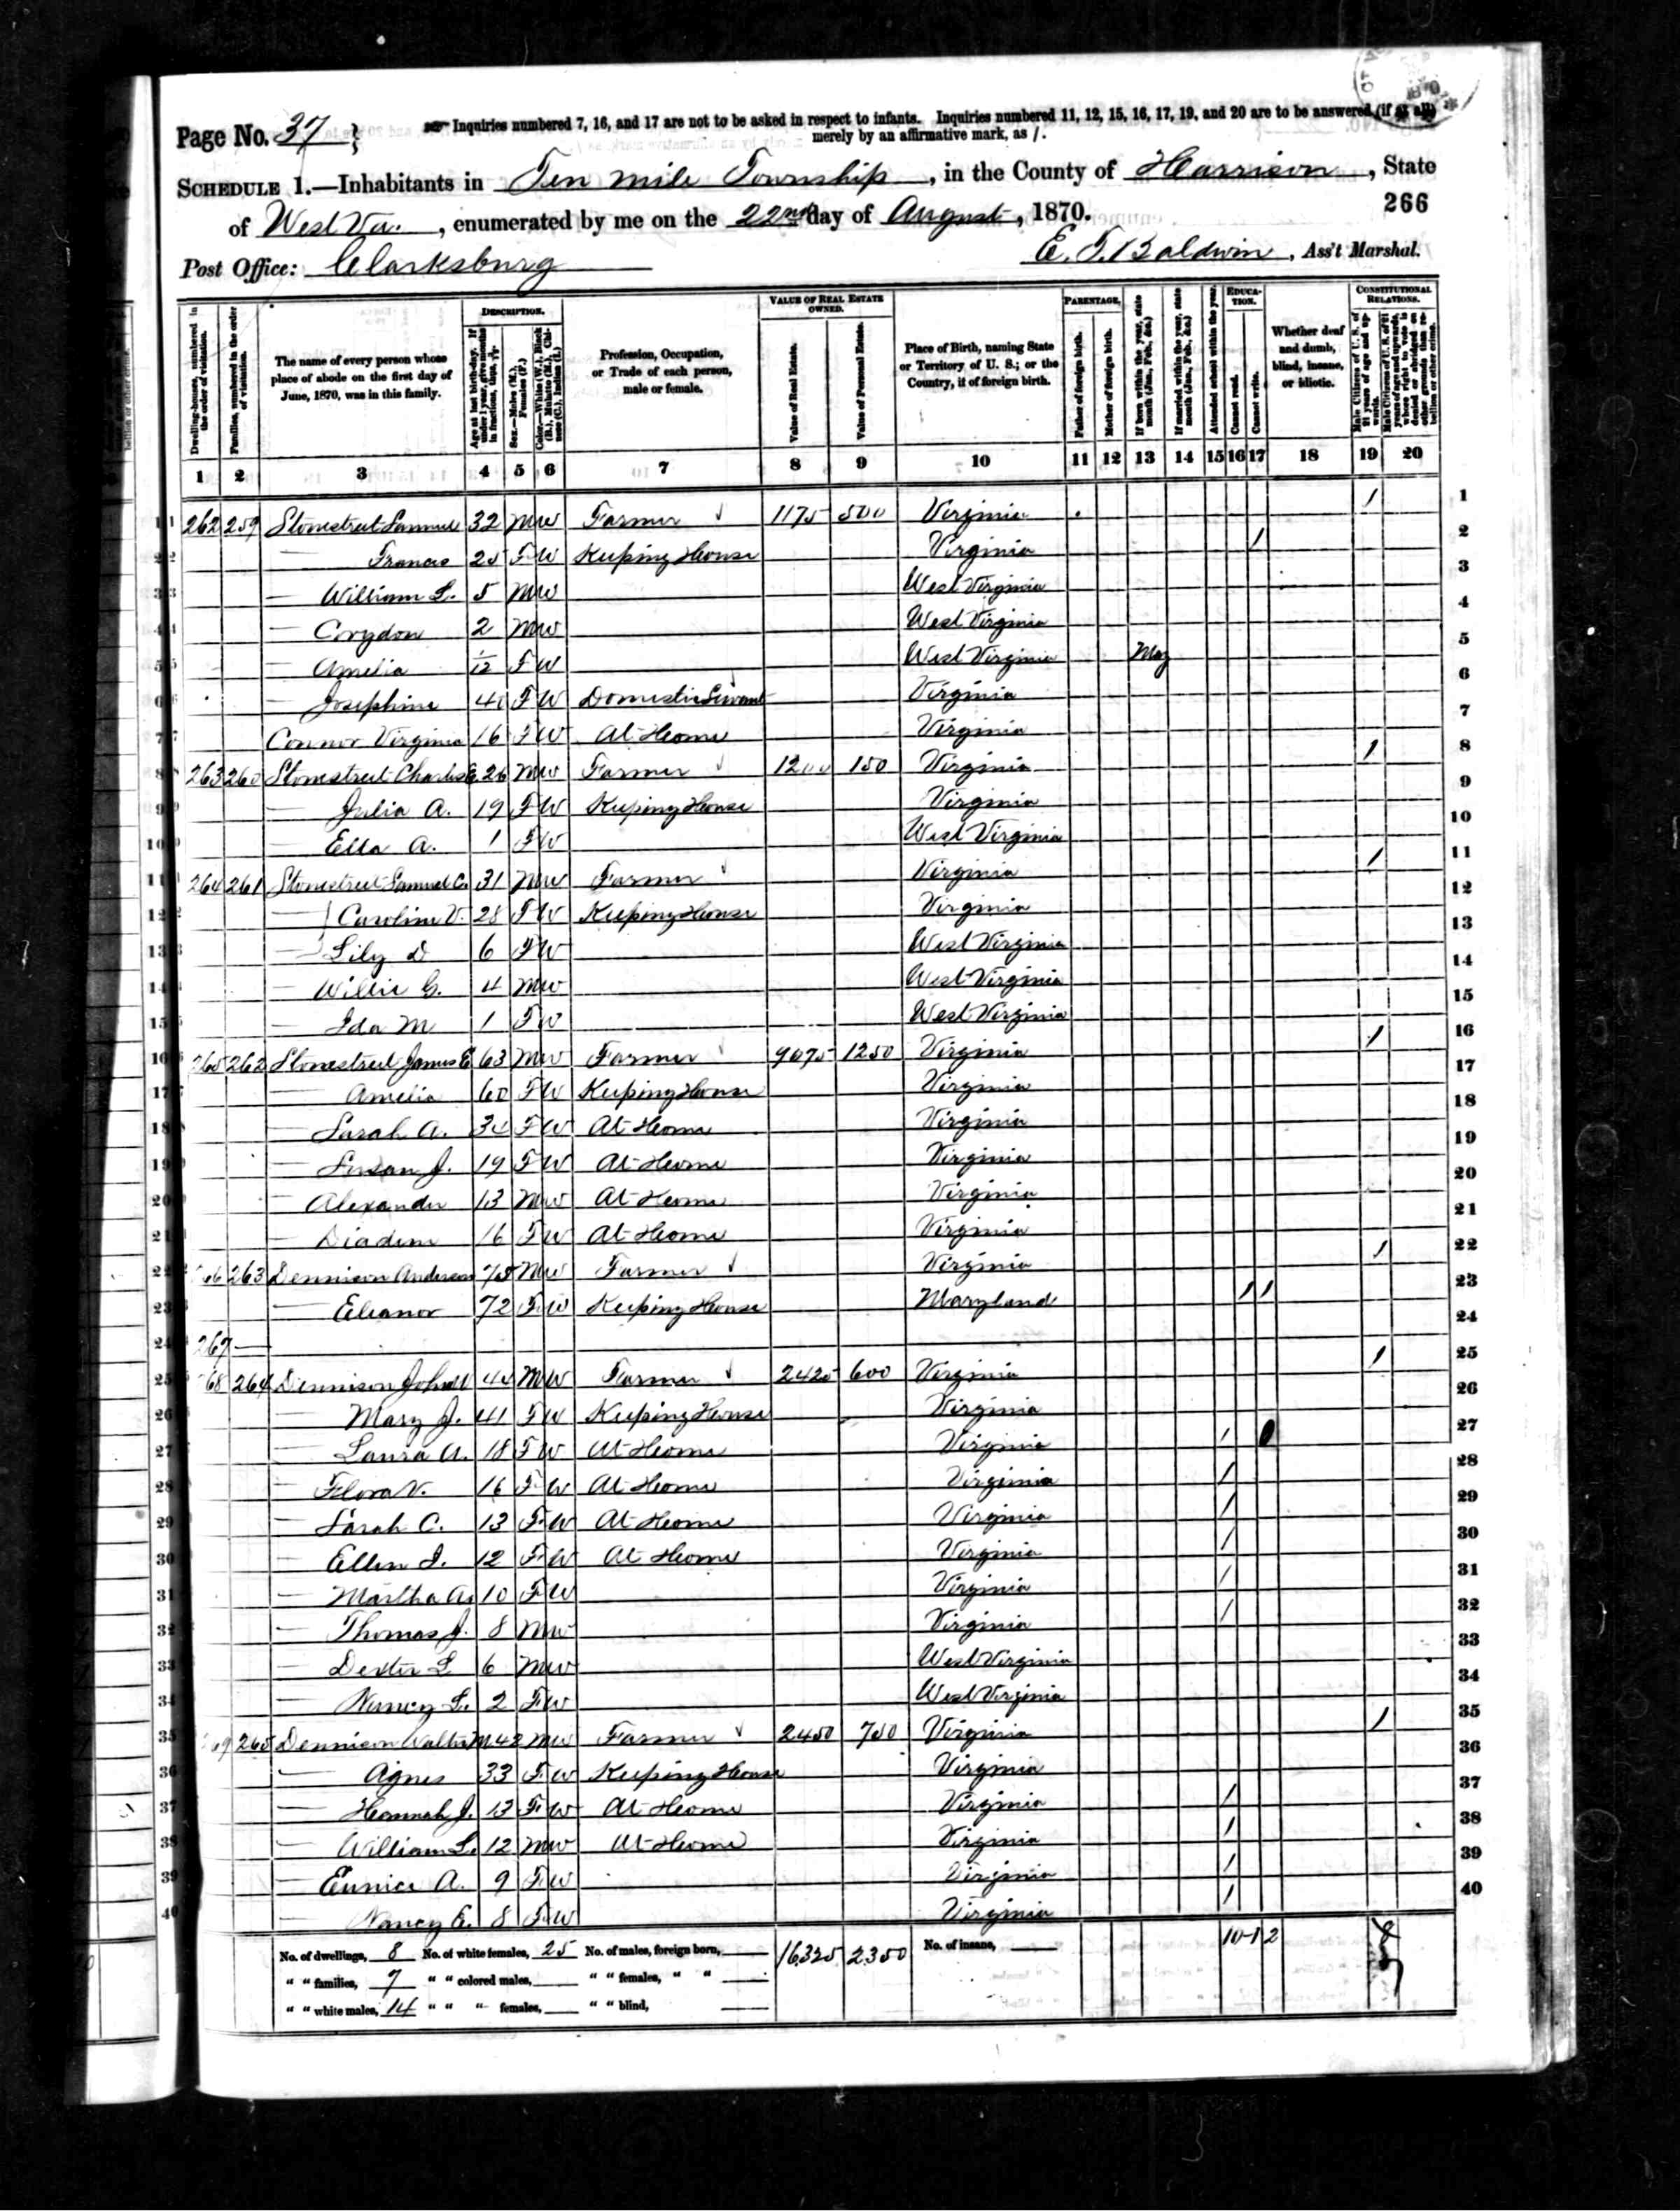 Page No. 37
Inquiries numbered 7, 16, and 17 are not to be asked in respect to infants. Inquiries numbered 11, 12, 15, 16, 17, 19, and 20 are to be answered (if at all)
merely by an affirmative mark, as /.
SCHEDULE 1.—Inhabitants in Ten mile Township, in the County of Harrison, State
of West Va., enumerated by me on the 22nd day of August, 1870.
266
Post Office: Clarksburg
E. T. Baldwin, Ass't Marshal.
Dwelling-houses, numbered in the order of visitation.
Families, numbered in the order of visitation.
The name of every person whose place of abode on the first day of June, 1870, was in this family.
DESCRIPTION.
Age at last birth-day. If under 1 year, give months in fractions, thus,
Sex.—Males (M.), Females (F.)
Color.—White (W.), Black (B.), Mulatto (M.), Chinese (C.), Indian (I.)
Profession, Occupation, or Trade of each person, male or female.
VALUE OF REAL ESTATE OWNED.
Value of Real Estate.
Value of Personal Estate.
Place of Birth, naming State or Territory of U. S.; or the Country, if of foreign birth.
PARENTAGE.
Father of foreign birth.
Mother of foreign birth.
If born within the year, state month (Jan., Feb., &c.)
If married within the year, state month (Jan., Feb., &c.)
Attended school within the year.
EDUCATION.
Cannot read.
Cannot write.
Whether deaf and dumb, blind, insane, or idiotic.
CONSTITUTIONAL RELATIONS.
Male Citizens of U. S. of 21 years of age and upwards.
Male Citizens of U. S. of 21 years of age and upwards, whose right to vote is denied or abridged on other grounds than rebellion or other crime.
1 2 3 4 5 6 7 8 9 10 11 12 13 14 15 16 17 18 19 20
1 262 259 Stonestreet Samuel 32 M W Farmer 1175 500 Virginia / 1
2 — Frances 25 F W Keeping House Virginia / 2
3 — William L. 5 M W West Virginia 3
4 — Corydon 2 M W West Virginia 4
5 — Amelia 1/12 F W West Virginia May 5
6 — Josephine F W Domestic Servant Virginia 6
7 Connor Virginia 16 F W At Home Virginia 7
8 263 260 Stonestreet Charles E. 26 M W Farmer 1200 150 Virginia / 8
9 — Julia A. 19 F W Keeping House Virginia 9
10 — Ella A. 1 F W West Virginia 10
11 264 261 Stonestreet Samuel C. 31 M W Farmer Virginia / 11
12 — Caroline V. 28 F W Keeping House Virginia 12
13 — Lily D 6 F W West Virginia 13
14 — Willie G. 4 M W West Virginia 14
15 — Ida M 1 F W West Virginia 15
16 265 262 Stonestreet James E 63 M W Farmer 9075 1250 Virginia / 16
17 — Amelia 60 F W Keeping House Virginia 17
18 — Sarah A. 34 F W At Home Virginia 18
19 — Susan J. 19 F W At Home Virginia 19
20 — Alexander 13 M W At Home Virginia 20
21 — Diadem 16 F W At Home Virginia 21
22 266 263 Dennison Anderson 75 M W Farmer Virginia / 22
23 — Eleanor 72 F W Keeping House Maryland / / 23
24 267 — 24
25 268 264 Dennison John W 44 M W Farmer 2425 600 Virginia / 25
26 — Mary J. 41 F W Keeping House Virginia 26
27 — Laura A. 18 F W At Home Virginia / 27
28 — Flora V. 16 F W At Home Virginia / 28
29 — Sarah C. 13 F W At Home Virginia / 29
30 — Ellen I. 12 F W At Home Virginia / 30
31 — Martha A. 10 F W Virginia / 31
32 — Thomas J. 8 M W Virginia / 32
33 — Dexter L 6 M W West Virginia 33
34 — Nancy L. 2 F W West Virginia 34
35 269 265 Dennison Walter M 42 M W Farmer 2450 750 Virginia / 35
36 — Agnes 33 F W Keeping House Virginia 36
37 — Hannah J. 13 F W At Home Virginia / 37
38 — William L. 12 M W At Home Virginia / 38
39 — Eunice A. 9 F W Virginia / 39
40 — Nancy E. 8 F W Virginia / 40
No. of dwellings, 8 No. of white females, 25 No. of males, foreign born, 16325 2350 No. of insane, 10 1 2
" " families, 7 " " colored males, " " females, " "
" " white males, 14 " " " females, " " blind,